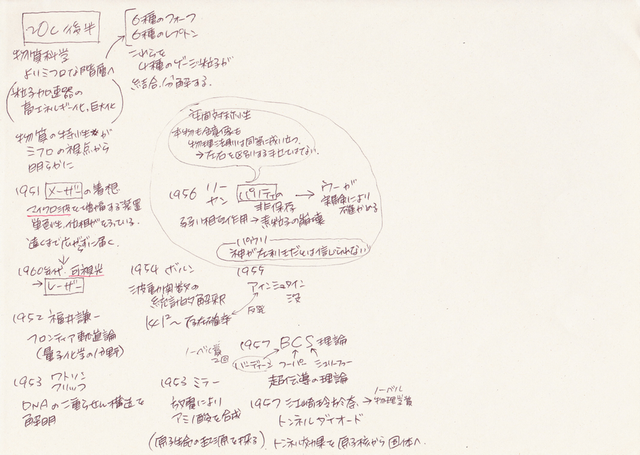 20C 後半
6種のクォーク
6種のレプトン
これらを
4種のゲージ粒子が
結合、分解する。
物質科学
よりミクロな階層へ
粒子加速器の
高エネルギー化、巨大化
物質の特性が
ミクロの視点から
明らかに
空間対称性
実物も鏡像も
物理法則は同等に成り立つ。
→左右を区別することはできない。
1951 メーザーの着想
マイクロ波を増幅する装置
単色性、位相がそろっている。
遠くまで広がらずに届く。
1956 リー
ヤン
パリティの
非保存
→ウーが
実験により
確かめる
弱い相互作用→素粒子の崩壊
パウリ
神が左利きだとは信じられない
1960年代 可視光
→レーザー
1954 ボルン
波動関数の
統計的解釈
|ψ|²~存在確率
1955
アインシュタイン
没
反対
1952 福井謙一
フロンティア軌道論
(量子化学の分野)
1957 BCS理論
ノーベル賞
2回
バーディーン
クーパー
シュリーファー
超伝導の理論
1953 ワトソン
クリック
DNAの二重らせん構造を
解明
1953 ミラー
放電により
アミノ酸を合成
(原子生命の起源を探る)
1957 江崎玲於奈
→ノーベル
物理学賞
トンネルダイオード
トンネル効果を原子核から固体へ。